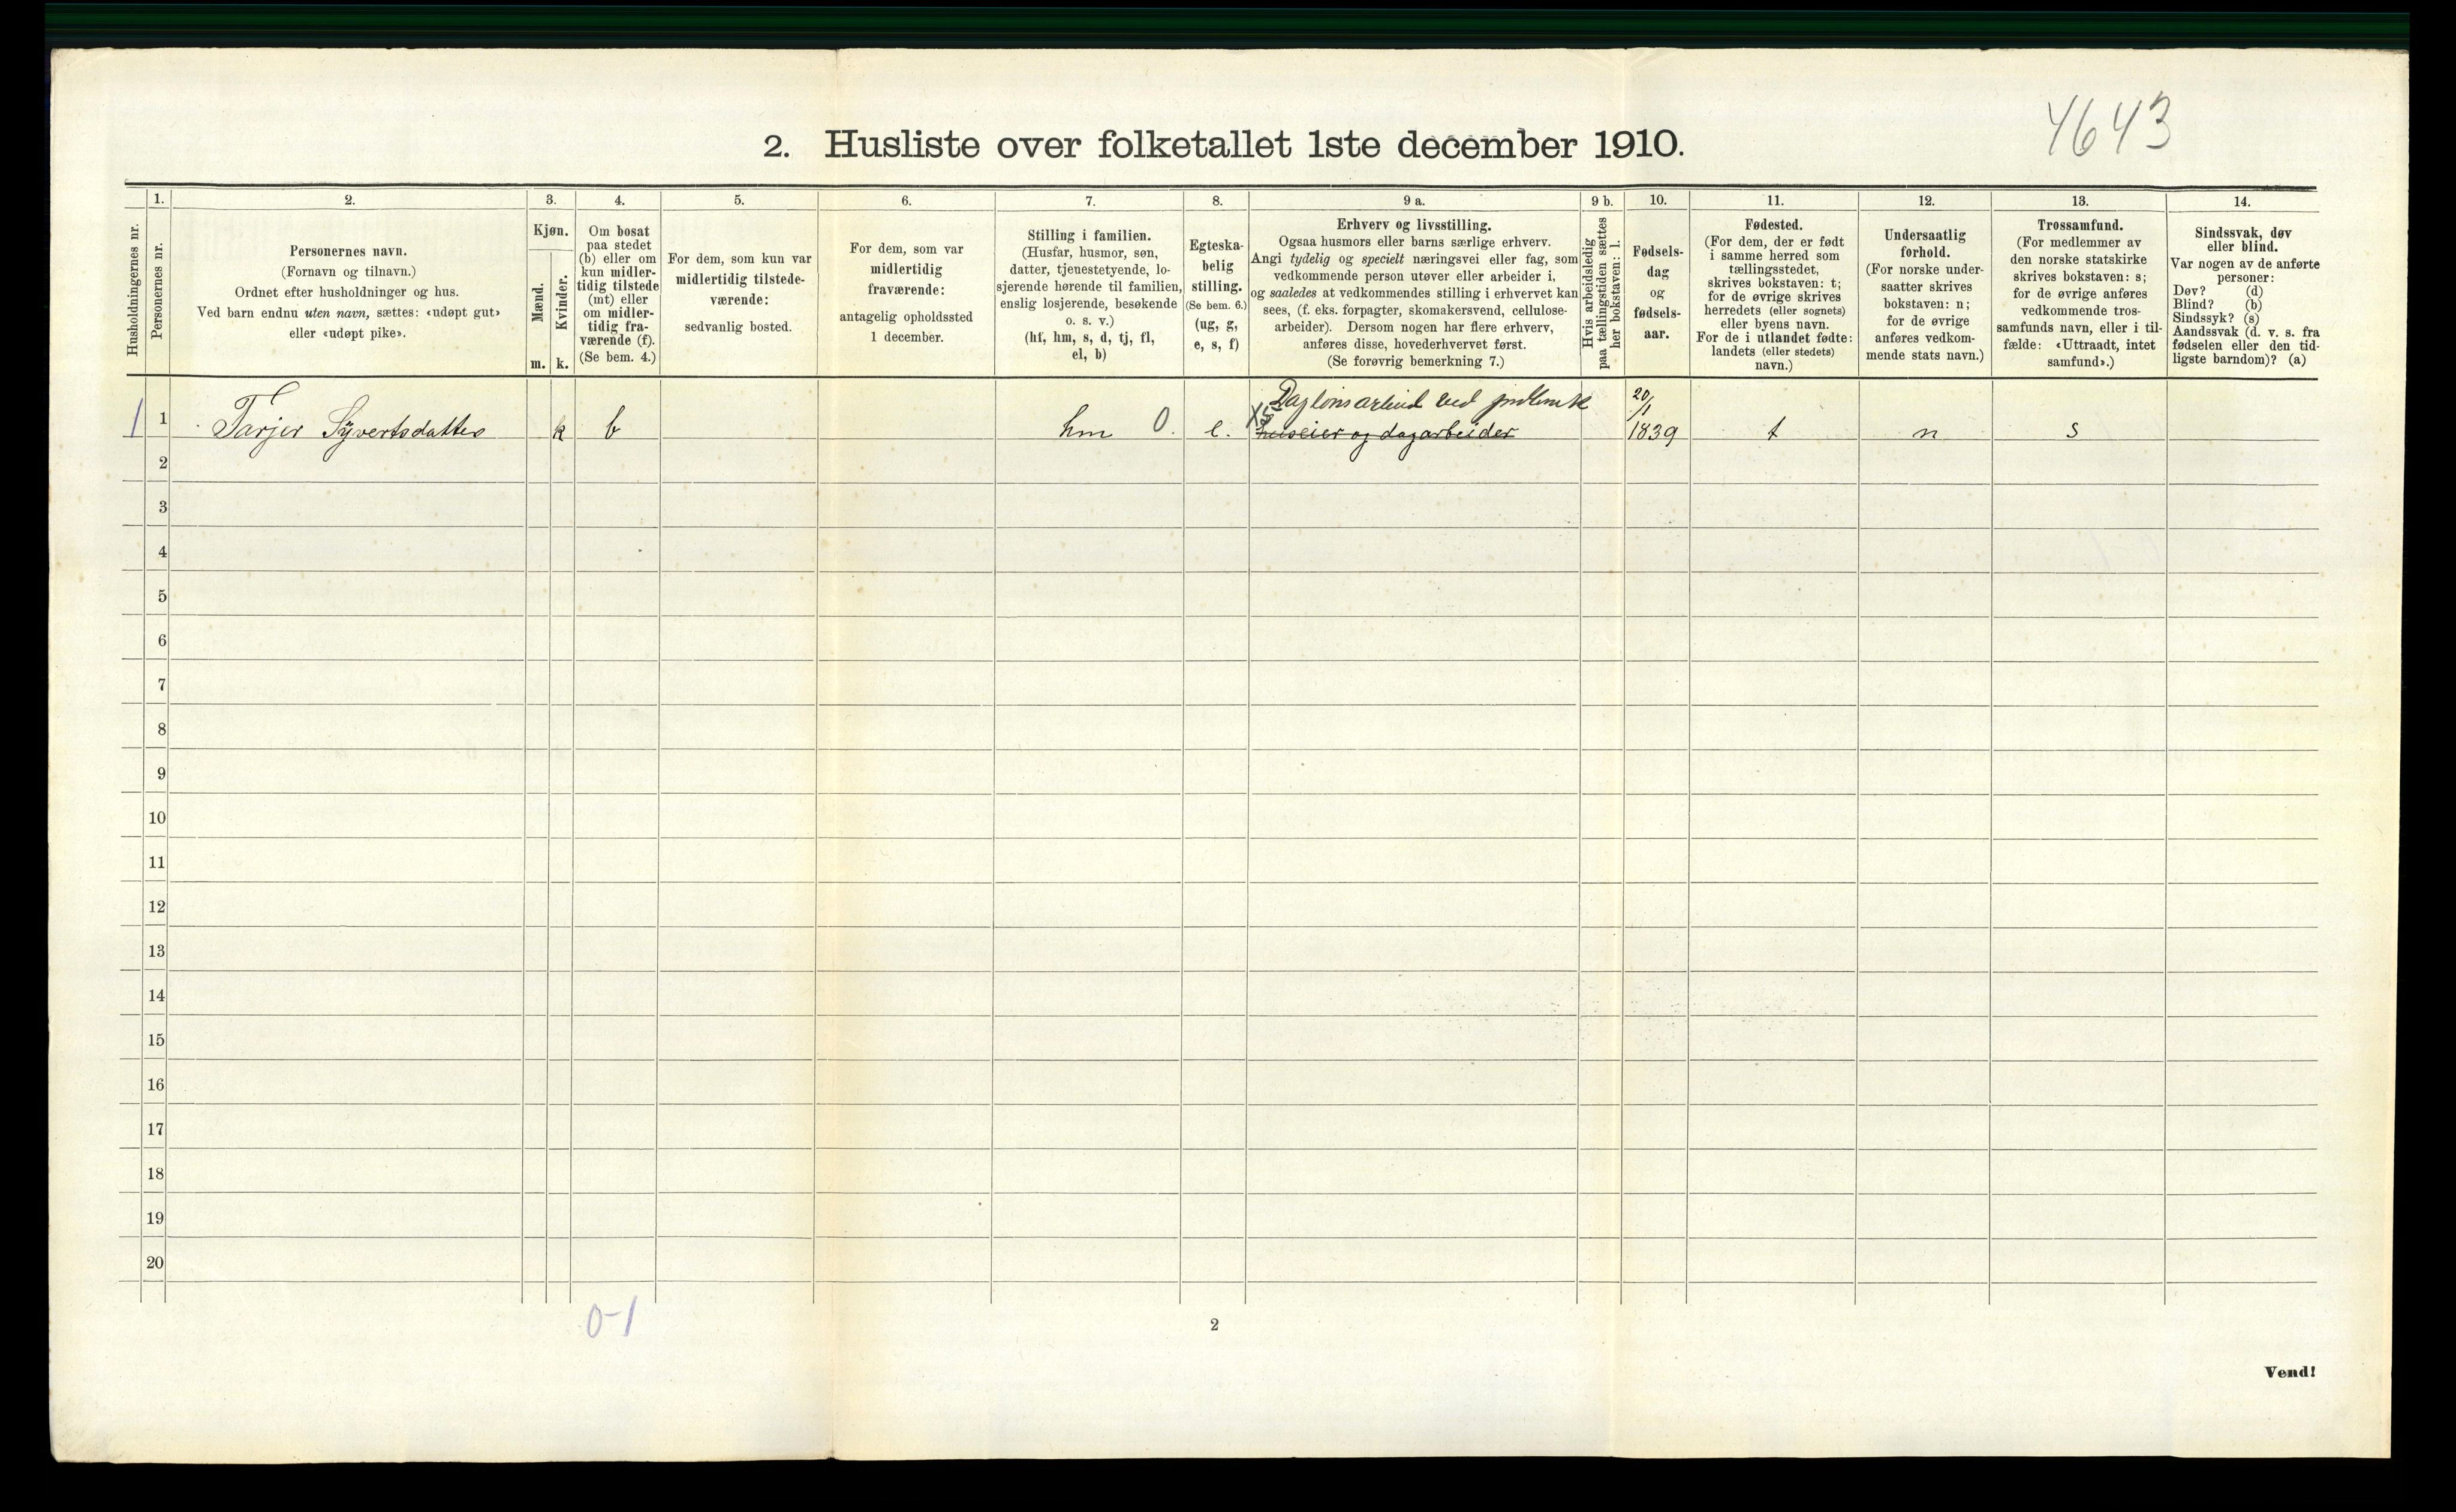 4643
2. Husliste over folketallet 1ste december 1910.
Husholdningernes nr.
1.
Personernes nr.
2.
Personernes navn.
(Fornavn og tilnavn.)
Ordnet efter husholdninger og hus.
Ved barn endnu uten navn, sættes: «udøpt gut»
eller «udøpt pike».
3.
Kjøn.
Mænd.
m.
Kvinder.
k.
4.
Om bosat
paa stedet
(b) eller om
kun midler-
tidig tilstede
(mt) eller
om midler-
tidig fra-
værende (f).
(Se bem. 4.)
5.
For dem, som kun var
midlertidig tilstede-
værende:
sedvanlig bosted.
6.
For dem, som var
midlertidig
fraværende:
antagelig opholdssted
1 december.
7.
Stilling i familien.
(Husfar, husmor, søn,
datter, tjenestetyende, lo-
sjerende hørende til familien,
enslig losjerende, besøkende
o. s. v.)
(hf, hm, s, d, tj, fl,
el, b)
8.
Egteska-
belig
stilling.
(Se bem. 6.)
(ug, g,
e, s, f)
9 a.
Erhverv og livsstilling.
Ogsaa husmors eller barns særlige erhverv.
Angi tydelig og specielt næringsvei eller fag, som
vedkommende person utøver eller arbeider i,
og saaledes at vedkommendes stilling i erhvervet kan
sees, (f. eks. forpagter, skomakersvend, cellulose-
arbeider). Dersom nogen har flere erhverv,
anføres disse, hovederhvervet først.
(Se forøvrig bemerkning 7.)
9 b.
Hvis arbeidsledig
paa tællingstiden sættes
her bokstaven: l.
10.
Fødsels-
dag
og
fødsels-
aar.
11.
Fødested.
(For dem, der er født
i samme herred som
tællingsstedet,
skrives bokstaven: t;
for de øvrige skrives
herredets (eller sognets)
eller byens navn.
For de i utlandet fødte:
landets (eller stedets)
navn.)
12.
Undersaatlig
forhold.
(For norske under-
saatter skrives
bokstaven: n;
for de øvrige
anføres vedkom-
mende stats navn.)
13.
Trossamfund.
(For medlemmer av
den norske statskirke
skrives bokstaven: s;
for de øvrige anføres
vedkommende tros-
samfunds navn, eller i til-
fælde: «Uttraadt, intet
samfund».)
14.
Sindssvak, døv
eller blind.
Var nogen av de anførte
personer:
Døv? (d)
Blind? (b)
Sindssyk? (s)
Aandssvak (d. v. s. fra
fødselen eller den tid-
ligste barndom)? (a)
Daglønsarbeid ved
1 1 Tarjer Syvertsdatter k b hm 0. e. huseier og dagarbeider 20/1 1839 t n s
2
3
4
5
6
7
8
9
10
11
12
13
14
15
16
17
18
19
20
0-1
2
Vend!